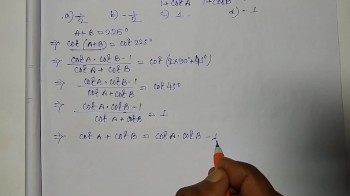 1+cotA 1+cotB
a) 1/2 b) -1/2 c) 1 d) -1
A+B = 225°
⇒ cot(A+B) = cot 225°
⇒ (cotA·cotB-1)/(cotA+cotB) = cot(2×90°+45°)
⇒ (cotA·cotB-1)/(cotA+cotB) = cot 45°
⇒ (cotA·cotB-1)/(cotA+cotB) = 1
⇒ cotA + cotB = cotA·cotB - 1